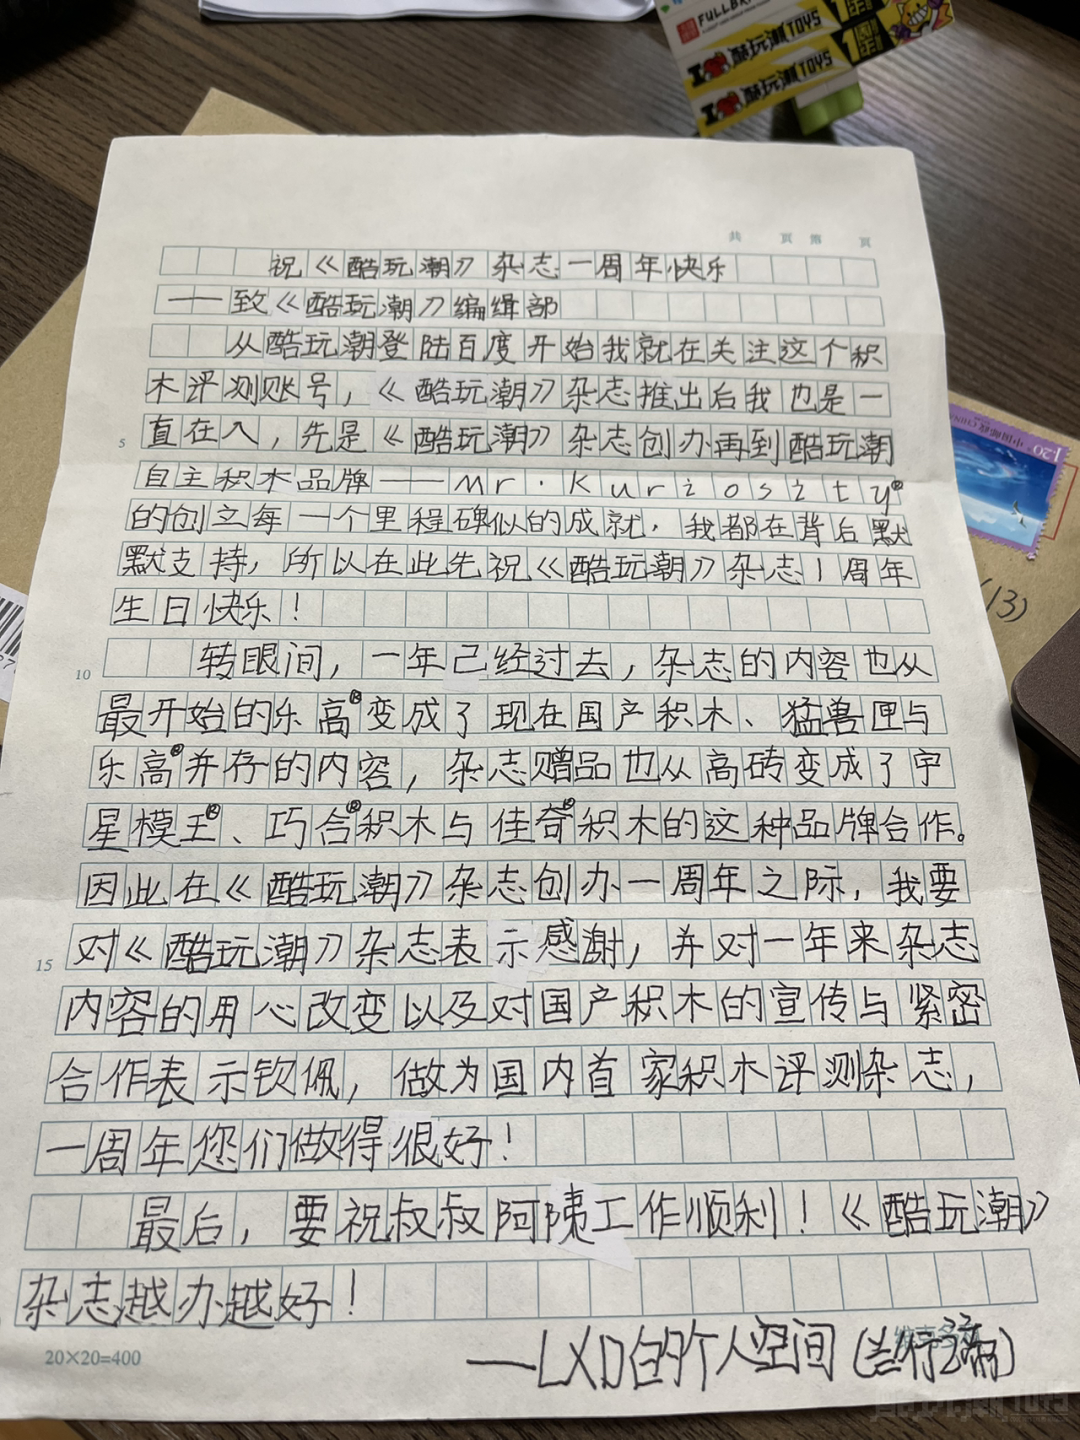 FULLBR
酷玩潮TOYS
酷玩潮TOYS
共 頁 第 頁
祝《酷玩潮》杂志一周年快乐
——致《酷玩潮》编缉部
从酷玩潮登陆百度开始我就在关注这个积
木评测账号，《酷玩潮》杂志推出后我也是一
5
直在入，先是《酷玩潮》杂志创办再到酷玩潮
自主积木品牌——Mr.Kuriosity®
的创立每一个里程碑似的成就，我都在背后默
默支持，所以在此先祝《酷玩潮》杂志1周年
生日快乐！
10
转眼间，一年己经过去，杂志的内容也从
最开始的乐高®变成了现在国产积木、猛兽匣与
乐高®并存的内容，杂志赠品也从高砖变成了宇
星模王®、巧合®积木与佳奇®积木的这种品牌合作。
因此在《酷玩潮》杂志创办一周年之际，我要
15
对《酷玩潮》杂志表示感谢，并对一年来杂志
内容的用心改变以及对国产积木的宣传与紧密
合作表示钦佩，做为国内首家积木评测杂志，
一周年您们做得很好！
最后，要祝叔叔阿姨工作顺利！《酷玩潮》
杂志越办越好！
——LXD的个人空间
20×20=400
1.20
中国邮政 CHINA
13)